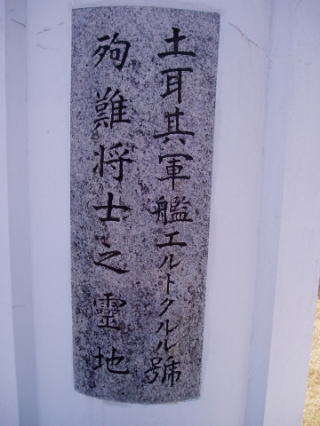 土耳其軍艦エルトクルル號
殉難将士之靈地